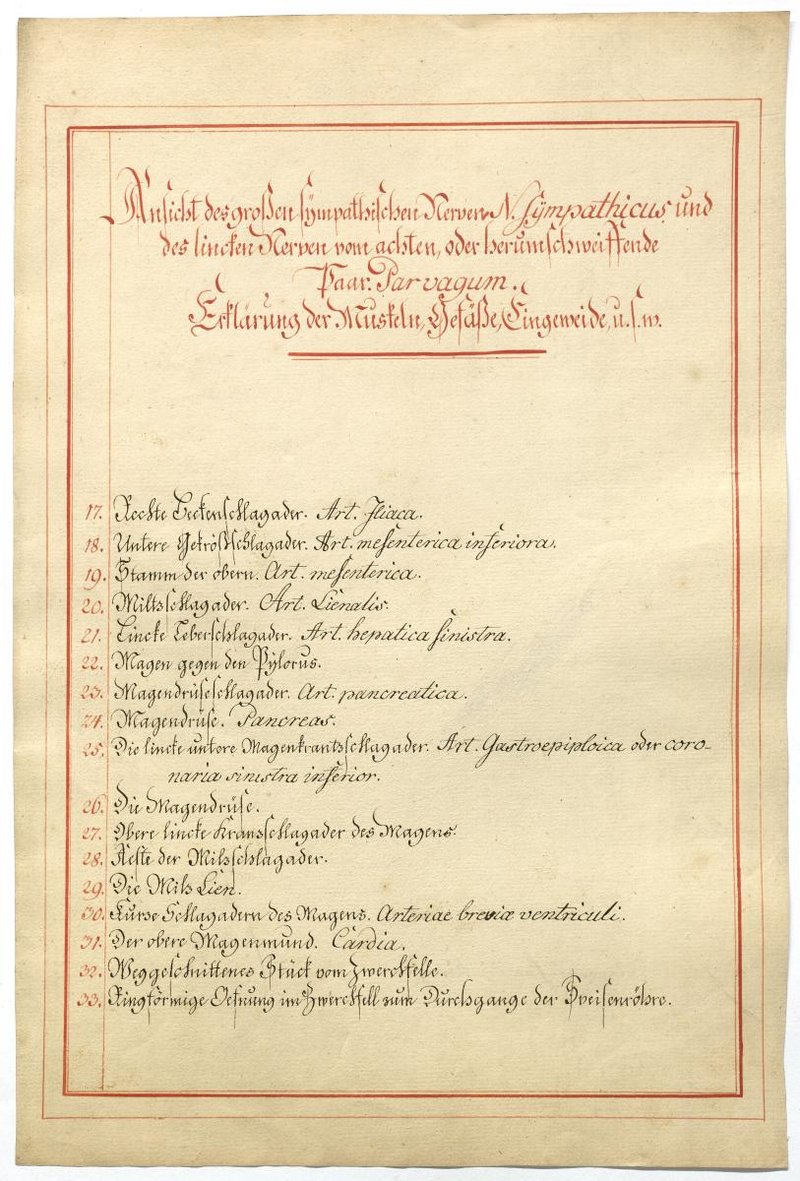 Ansicht des großen sÿmpathischen Nerven N. Sÿmpathicus, und
des lincken Nerven vom achten, oder herumschweiffende
Paar. Par vagum.
Erklärung der Muskeln, Gefäße, Eingeweide, u. s. w.
17. Rechte Beckenschlagader. Art. Iliaca.
18. Untere Gekrößschlagader. Art. mesenterica inferiora.
19. Stamm der obern. Art. mesenterica.
20. Miltzschlagader. Art. Lienalis.
21. Lincke Leberschlagader. Art. hepatica sinistra.
22. Magen gegen den Pÿlorus.
23. Magendrüseschlagader. Art. pancreatica.
24. Magendrüse. Pancreas.
25. Die lincke untere Magenkrantzschlagader. Art. Gastroepiploica oder coro-
naria sinistra inferior.
26. Die Magendrüse.
27. Obere lincke Kransschlagader des Magens.
28. Aeste der Milzschlagader.
29. Die Milz Lien.
30. Kurze Schlagadern des Magens. Arteriae breviæ ventriculi.
31. Der obere Magenmund. Cardia.
32. Weggeschnittenes Stück vom Zwerckfelle.
33. Ringförmige Oefnung im Zwerckfell zum Durchgange der Speisenröhre.